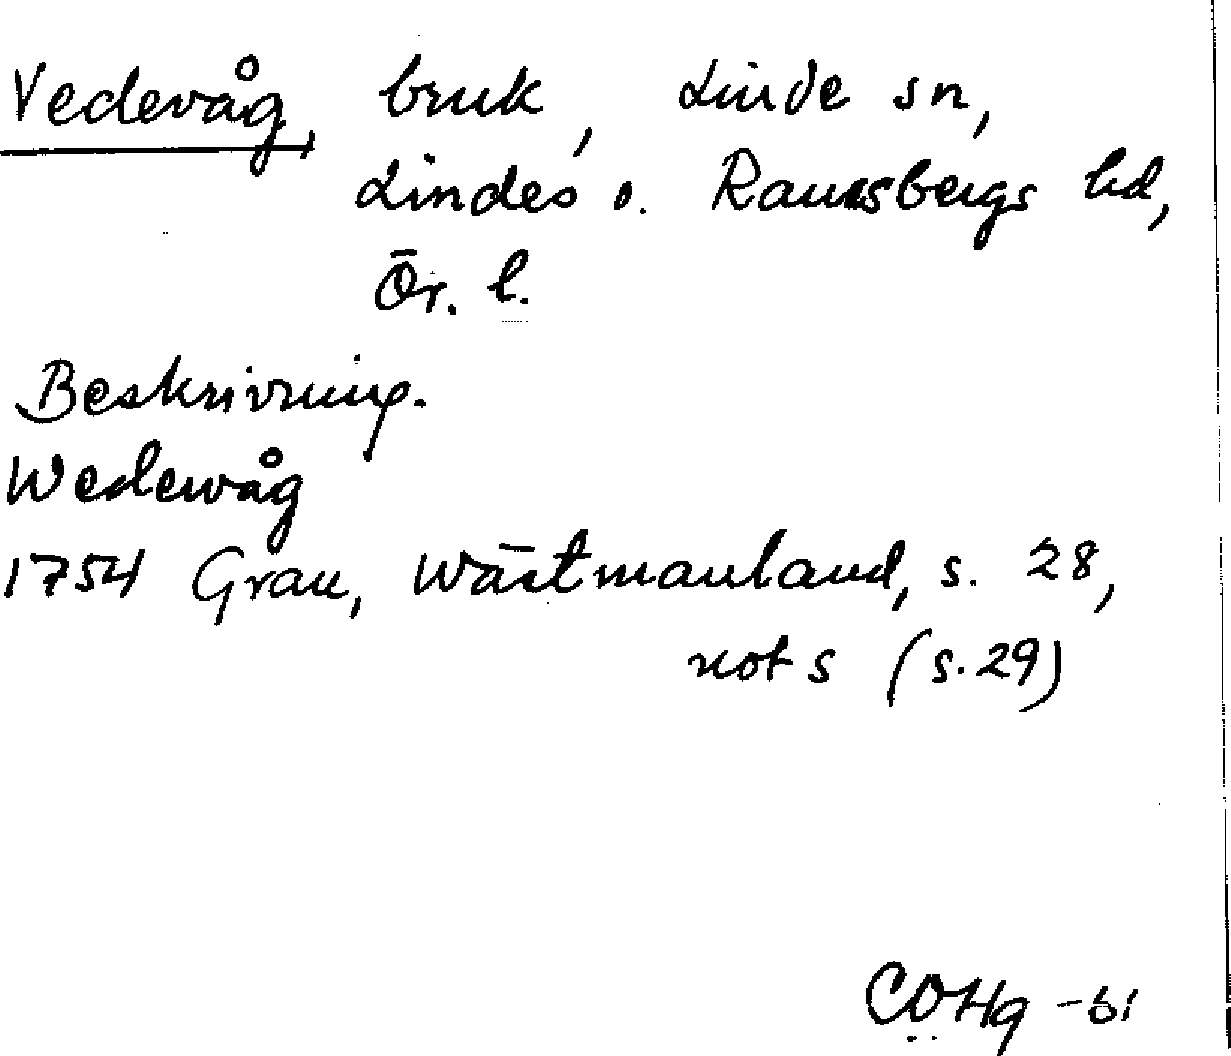 Vedevåg, bruk, Linde sn,
Lindes o. Ramsbergs hd,
Ör. l.
Beskrivning.
Wedewåg
1754 Grau, Wästmanland, s. 28,
not s (s. 29)
COHg -61